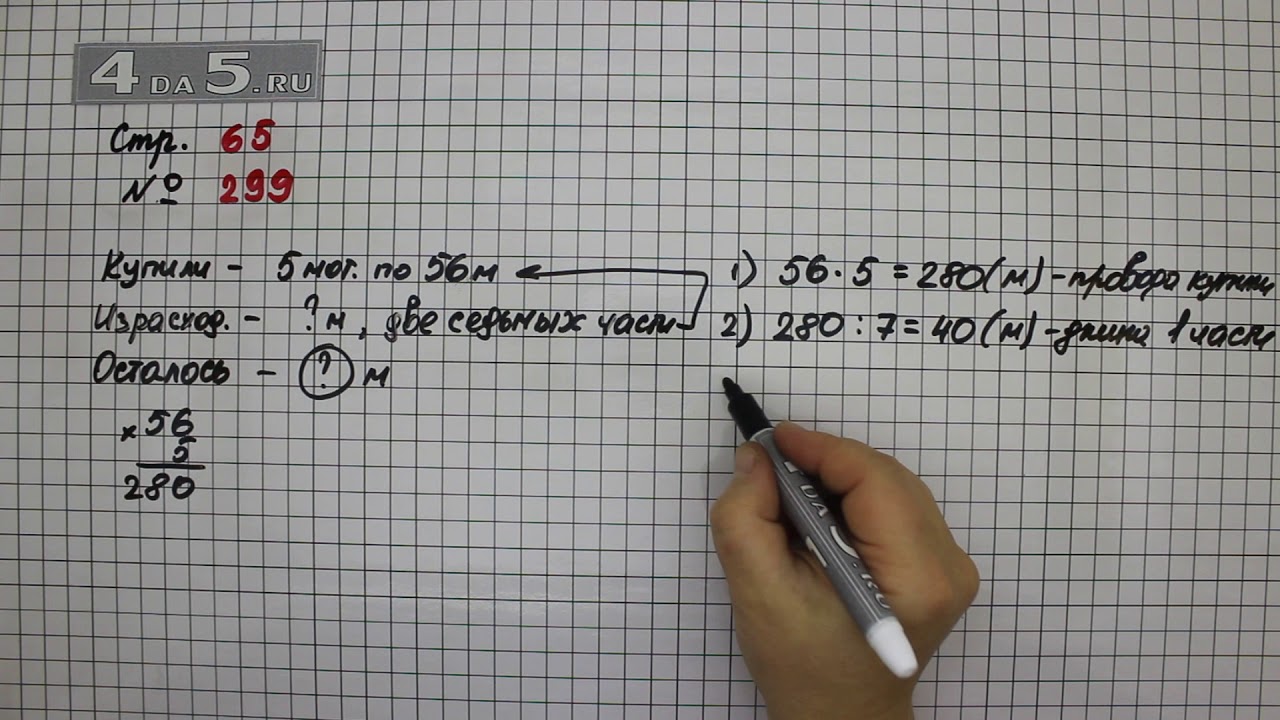 4 DA 5.RU
Стр. 65
№ 299
Купили - 5 мот. по 56 м
Израсход. - ? м, две седьмых части
Осталось - ? м
× 56
5
280
1) 56 · 5 = 280 (м) - провода купили
2) 280 : 7 = 40 (м) - длина 1 части
DA 5.RU